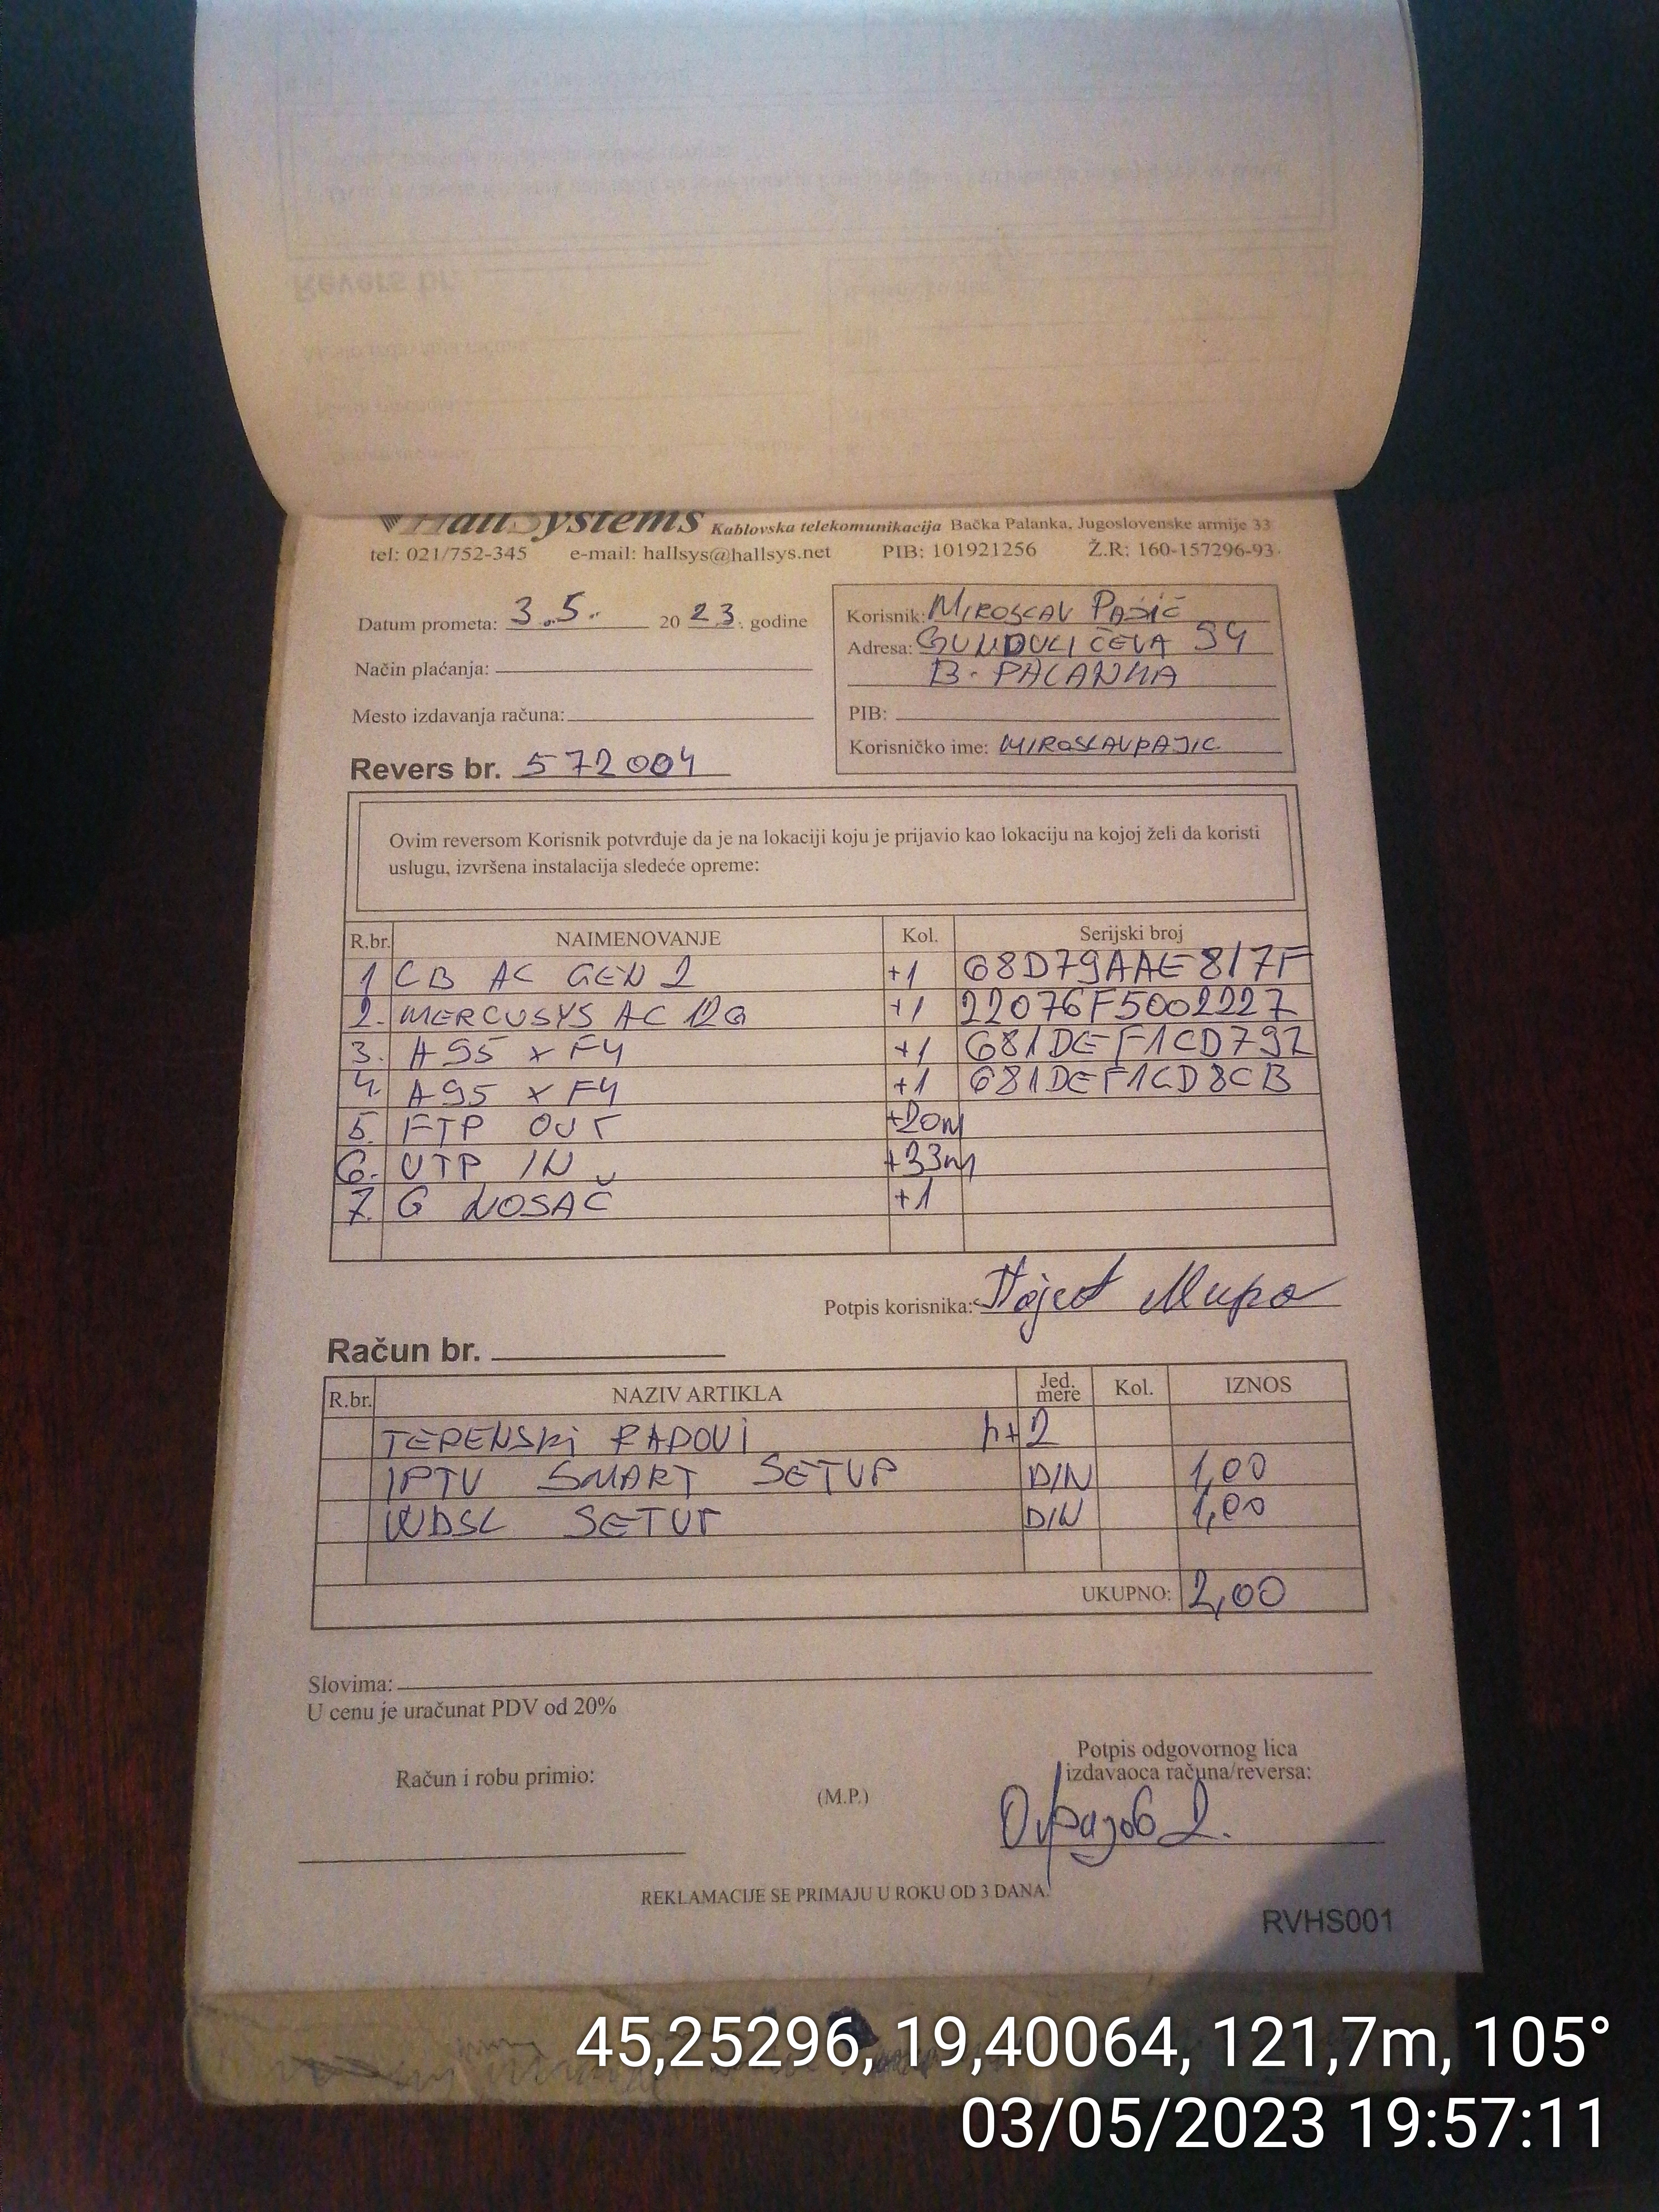 HallSystems Kablovska telekomunikacija Bačka Palanka, Jugoslovenske armije 33
tel: 021/752-345 e-mail: hallsys@hallsys.net PIB: 101921256 Ž.R: 160-157296-93
Datum prometa: 3.5. 2023. godine
Način plaćanja:
Mesto izdavanja računa:
Revers br. 572004
Korisnik: MIROSLAV PAJIĆ
Adresa: GUNDULIĆEVA 94
B. PALANKA
PIB:
Korisničko ime: MIROSLAVPAJIC
Ovim reversom Korisnik potvrđuje da je na lokaciji koju je prijavio kao lokaciju na kojoj želi da koristi
uslugu, izvršena instalacija sledeće opreme:
R.br. NAIMENOVANJE Kol. Serijski broj
1 CB AC GEN 2 +1 68D79AAE817F
2. MERCUSYS AC 12G +1 22076F5002227
3. A95 x F4 +1 681DEF1CD792
4. A95 x F4 +1 681DEF1CD8CB
5. FTP OUT +20m
6. UTP IN +33m
7. G NOSAČ +1
Potpis korisnika: Пајић Миро
Račun br.
R.br. NAZIV ARTIKLA Jed. mere Kol. IZNOS
TERENSKI RADOVI h+2
IPTV SMART SETUP DIN 1,00
WDSL SETUP DIN 1,00
UKUPNO: 2,00
Slovima:
U cenu je uračunat PDV od 20%
Račun i robu primio:
(M.P.)
Potpis odgovornog lica
izdavaoca računa/reversa:
REKLAMACIJE SE PRIMAJU U ROKU OD 3 DANA.
RVHS001
45,25296, 19,40064, 121,7m, 105°
03/05/2023 19:57:11